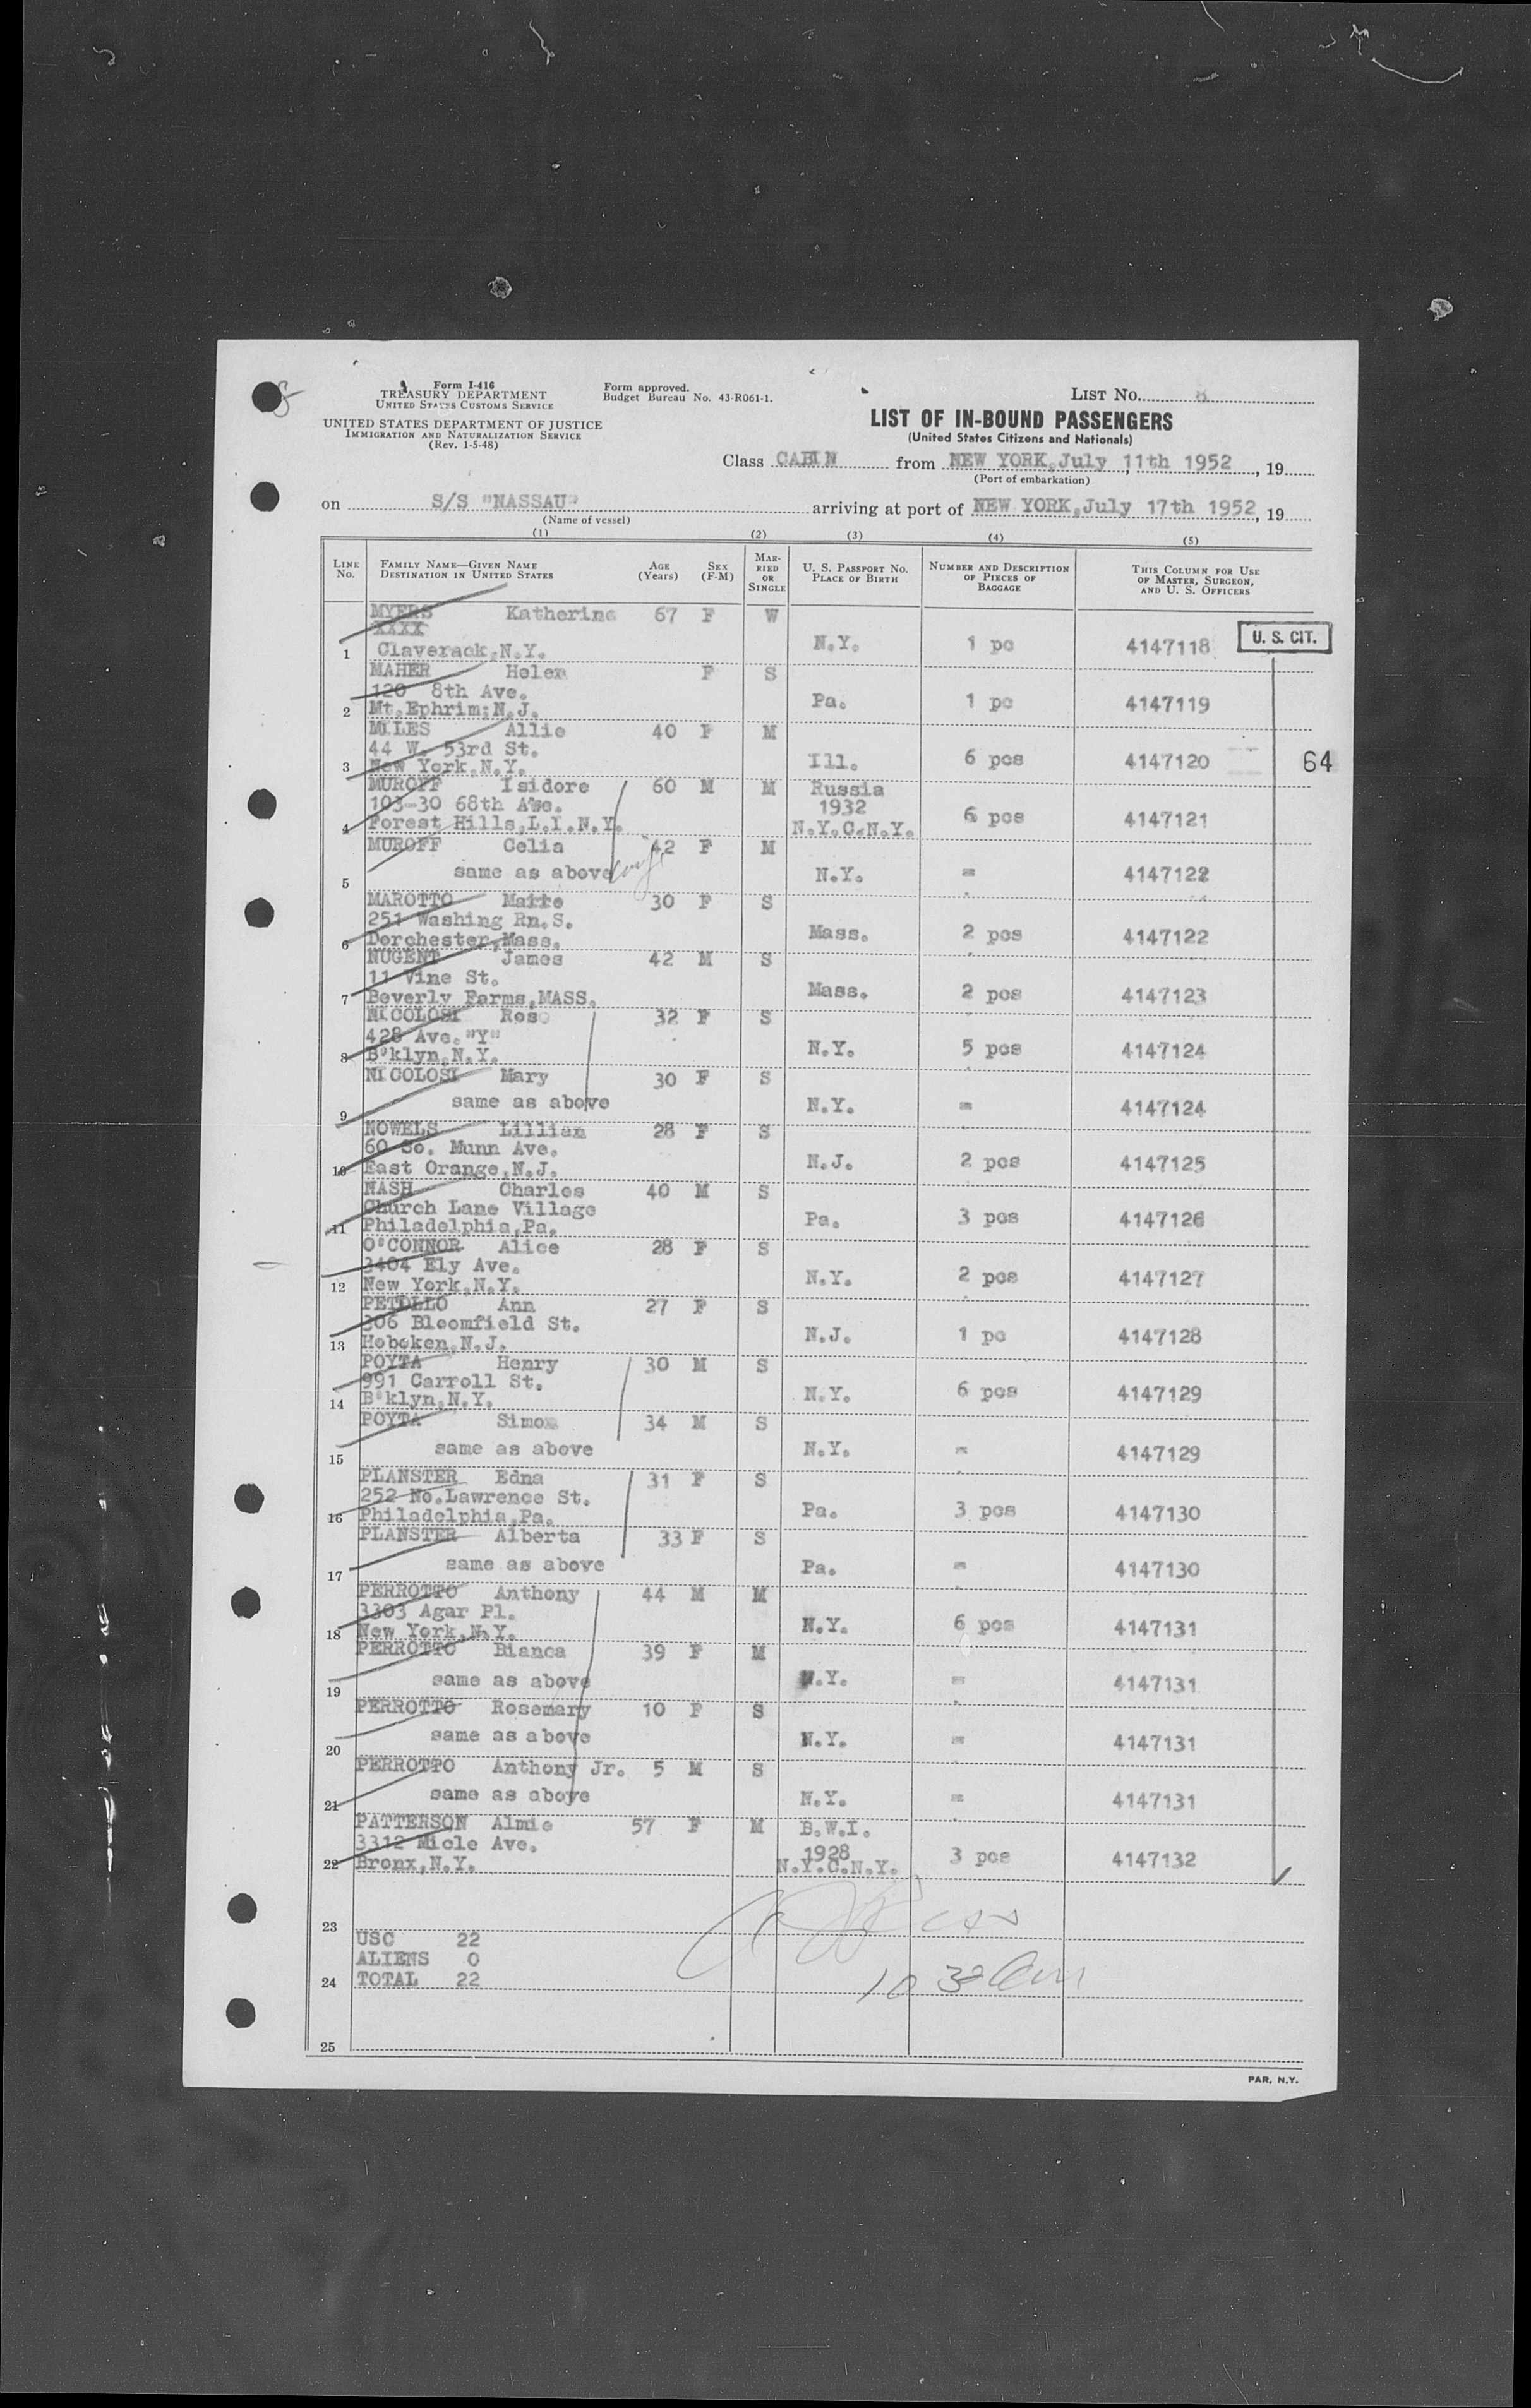 Form I-416
TREASURY DEPARTMENT
UNITED STATES CUSTOMS SERVICE
Form approved.
Budget Bureau No. 43-R061-1.
LIST No. 8
UNITED STATES DEPARTMENT OF JUSTICE
IMMIGRATION AND NATURALIZATION SERVICE
(Rev. 1-5-48)
LIST OF IN-BOUND PASSENGERS
(United States Citizens and Nationals)
Class CABIN from NEW YORK, July 11th 1952, 19
(Port of embarkation)
on S/S "NASSAU" arriving at port of NEW YORK, July 17th 1952, 19
(Name of vessel)
(1) (2) (3) (4) (5)
LINE No. FAMILY NAME—GIVEN NAME DESTINATION IN UNITED STATES AGE (Years) SEX (F-M) MARRIED OR SINGLE U. S. PASSPORT No. PLACE OF BIRTH NUMBER AND DESCRIPTION OF PIECES OF BAGGAGE THIS COLUMN FOR USE OF MASTER, SURGEON, AND U. S. OFFICERS
MYERS Katherine 67 F W
XXXX
1 Claverack, N.Y. N.Y. 1 pc 4147118 U. S. CIT.
MAHER Helen F S
120 8th Ave.
2 Mt. Ephrim: N.J. Pa. 1 pc 4147119
MILES Allie 40 F M
44 W. 53rd St.
3 New York, N.Y. Ill. 6 pcs 4147120 64
MUROFF Isidore 60 M M Russia
103-30 68th Ave. 1932
4 Forest Hills, L.I.N.Y. N.Y.C.N.Y. 6 pcs 4147121
MUROFF Celia 42 F M
5 same as above N.Y. = 4147122
MAROTTO 30 F S
251 Washing Rn. S.
6 Dorchester, Mass. Mass. 2 pcs 4147122
NUGENT James 42 M S
11 Vine St.
7 Beverly Farms, MASS. Mass. 2 pcs 4147123
NICOLOSI Rose 32 F S
428 Ave. "Y"
8 B'klyn, N.Y. N.Y. 5 pcs 4147124
NICOLOSI Mary 30 F S
9 same as above N.Y. = 4147124
NOWELS Lillian 28 F S
60 So. Munn Ave.
10 East Orange, N.J. N.J. 2 pcs 4147125
NASH Charles 40 M S
Church Lane Village
11 Philadelphia, Pa. Pa. 3 pcs 4147126
O'CONNOR Alice 28 F S
3404 Ely Ave.
12 New York, N.Y. N.Y. 2 pcs 4147127
PETOLLO Ann 27 F S
306 Bloomfield St.
13 Hoboken, N.J. N.J. 1 pc 4147128
POYTA Henry 30 M S
991 Carroll St.
14 B'klyn, N.Y. N.Y. 6 pcs 4147129
POYTA Simon 34 M S
15 same as above N.Y. = 4147129
PLANSTER Edna 31 F S
252 No. Lawrence St.
16 Philadelphia, Pa. Pa. 3 pcs 4147130
PLANSTER Alberta 33 F S
17 same as above Pa. = 4147130
PERROTTO Anthony 44 M M
3303 Agar Pl.
18 New York, N.Y. N.Y. 6 pcs 4147131
PERROTTO Bianca 39 F M
19 same as above N.Y. = 4147131
PERROTTO Rosemary 10 F S
20 same as above N.Y. = 4147131
PERROTTO Anthony Jr. 5 M S
21 same as above N.Y. = 4147131
PATTERSON Almie 57 F M B.W.I.
3312 Micle Ave. 1928
22 Bronx, N.Y. N.Y.C.N.Y. 3 pcs 4147132
23
USC 22
ALIENS 0
24 TOTAL 22
25
PAR. N.Y.